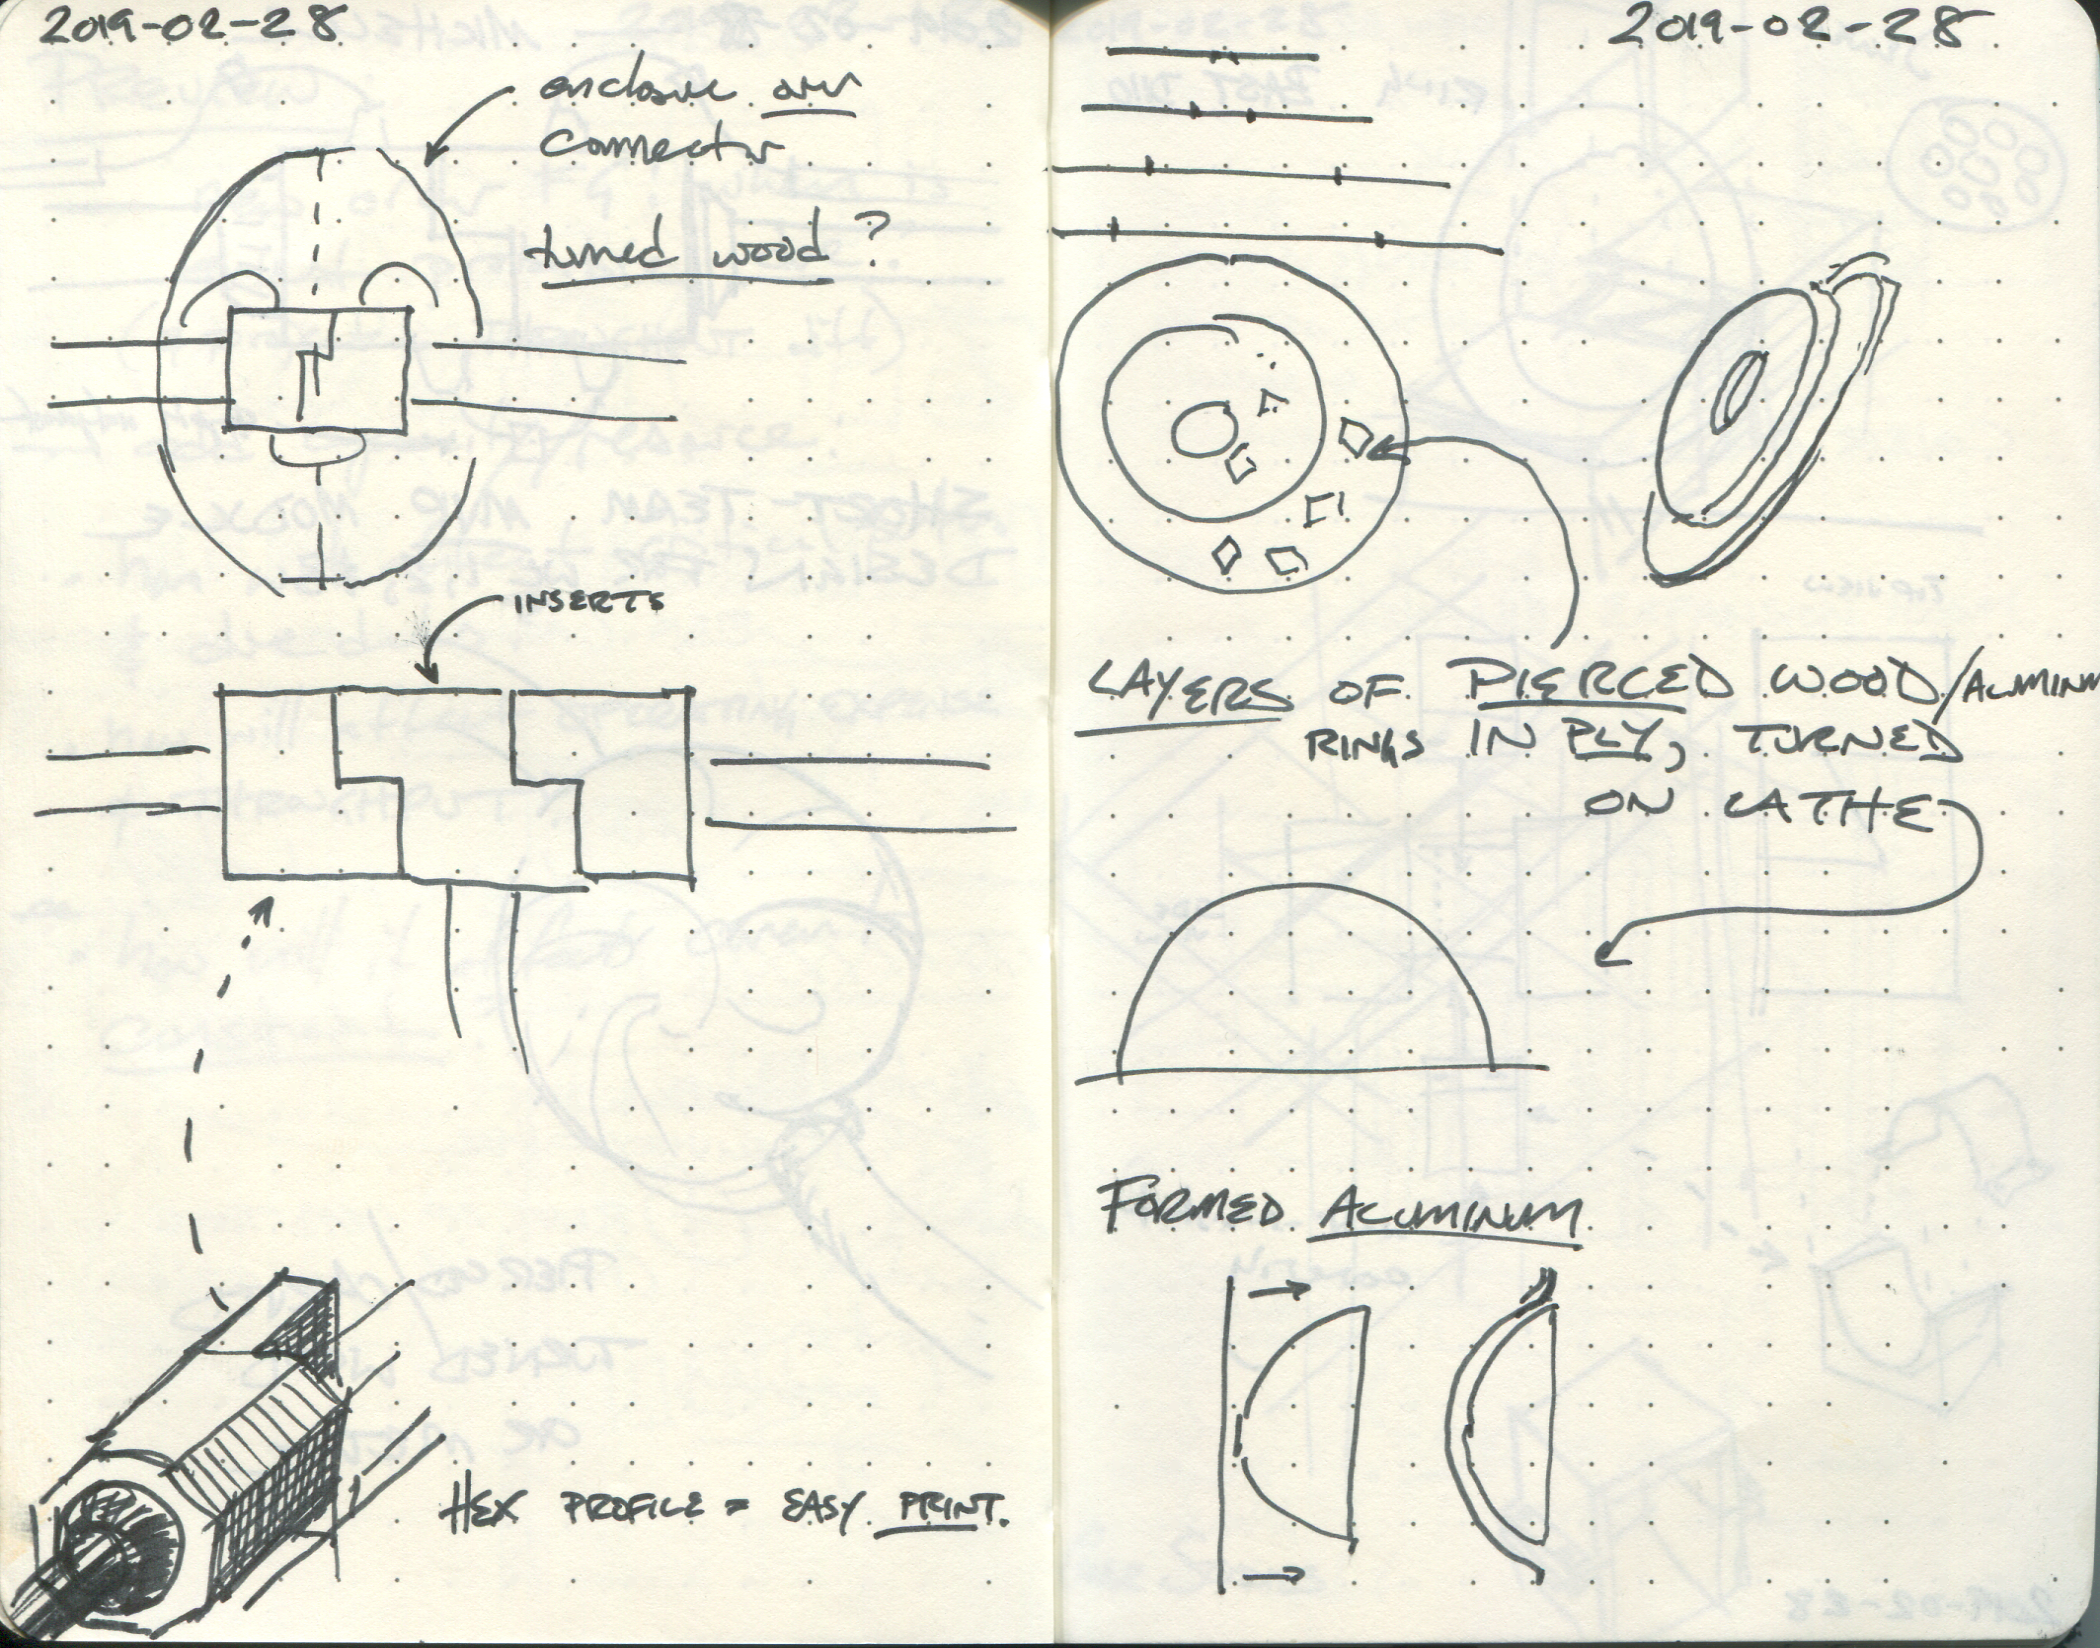 2019-02-28
enclose our
connector
turned wood?
INSERTS
HEX PROFILE = EASY PRINT.
2019-02-28
LAYERS OF PIERCED WOOD/ALUMINM
RINGS IN PLY, TURNED
ON LATHE
FORMED ALUMINUM